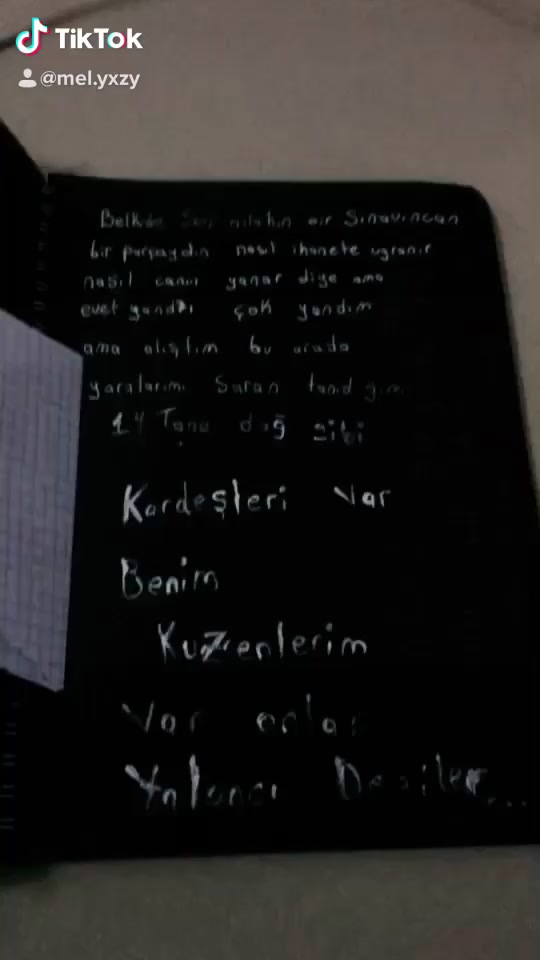 TikTok
@mel.yxzy
Belkide Sen bir Sınavından
bir parçaydın nasıl ihanete uğranır
nasıl canın yanar diye ama
evet yandı çok yandım
ama alıştım bu arada
yaralarımı Saran
14 Tane dağ gibi
Kardeşleri var
Benim
Kuzenlerim
Var onlar
Yalancı Degiler...